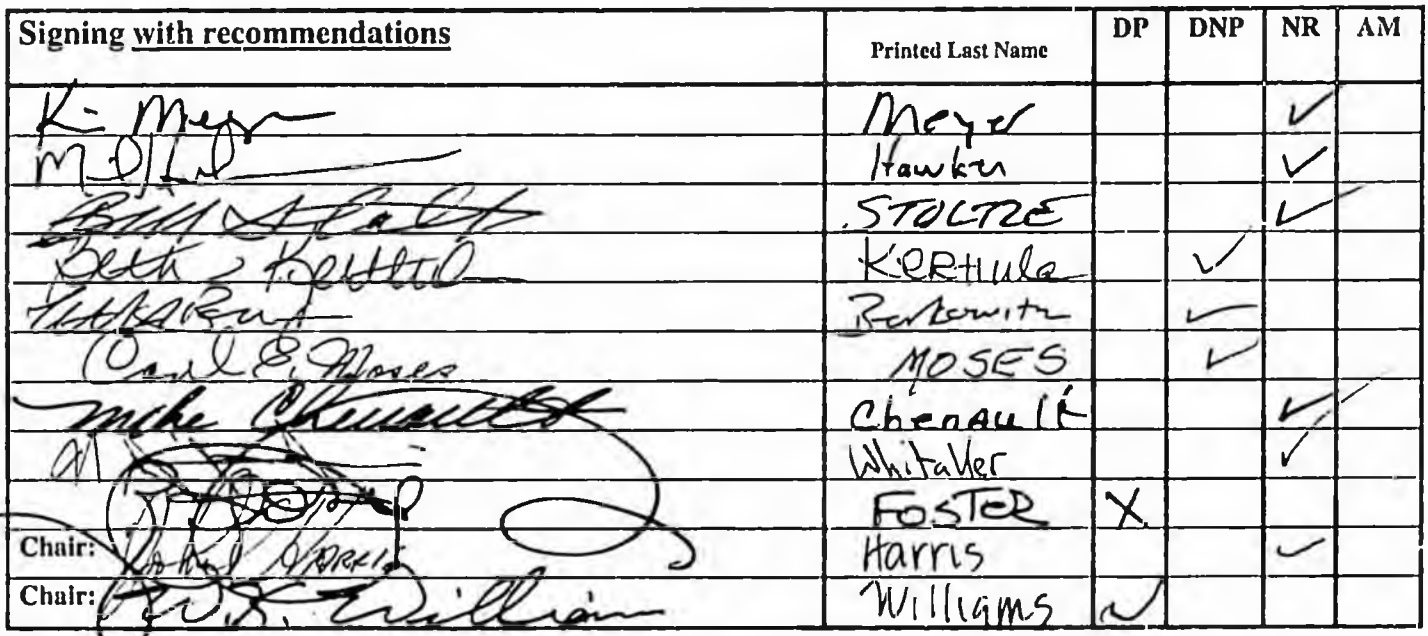 Signing with recommendations Printed Last Name DP DNP NR AM
Meyer Meyer ✓
Hawker ✓
STOLTZE ✓
Beth Kerttula KERttula ✓
Berkowitz ✓
Carl E. Moses MOSES ✓
Mike Chenault Chenault ✓
Whitaker ✓
FOSTER X
Chair: Harris Harris ✓
Chair: W.K. Williams Williams ✓